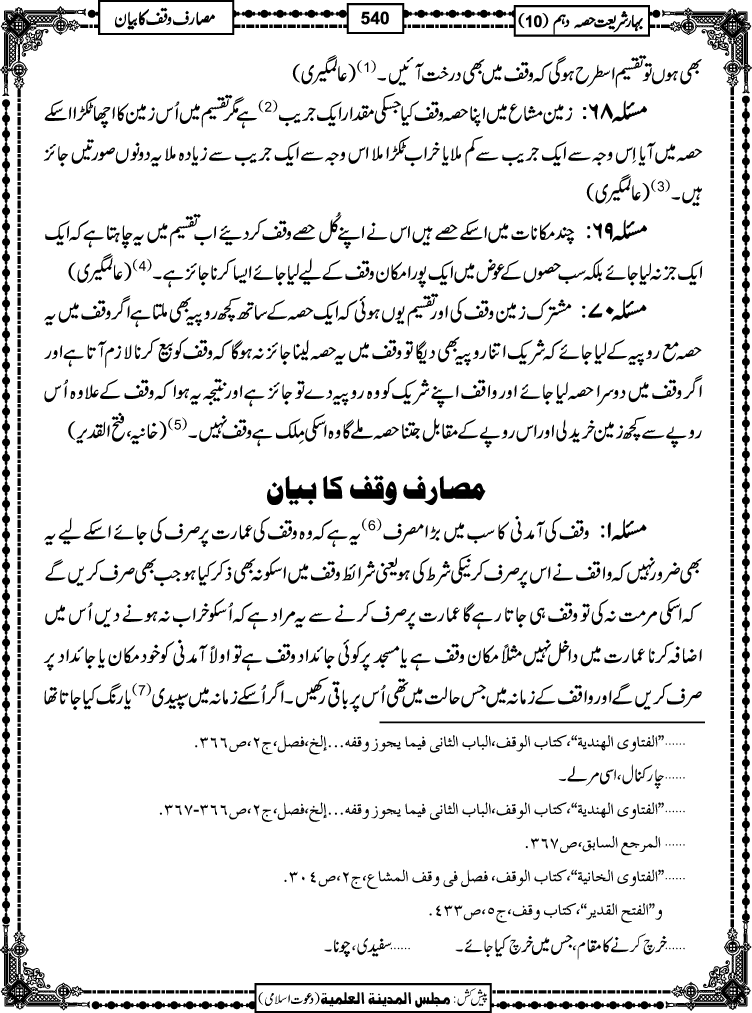 بہار شریعت حصہ دہم (10)
540
مصارف وقف کا بیان
بھی ہوں تو تقسیم اسطرح ہوگی کہ وقف میں بھی درخت آئیں۔(1) (عالمگیری)
مسئلہ ۶۸: زمین مشاع میں اپنا حصہ وقف کیا جسکی مقدار ایک جریب (2) ہے مگر تقسیم میں اُس زمین کا اچھا ٹکڑا اسکے
حصہ میں آیا اِس وجہ سے ایک جریب سے کم ملا یا خراب ٹکڑا ملا اس وجہ سے ایک جریب سے زیادہ ملا یہ دونوں صورتیں جائز
ہیں۔(3) (عالمگیری)
مسئلہ ۶۹: چند مکانات میں اسکے حصے ہیں اس نے اپنے کُل حصے وقف کر دیئے اب تقسیم میں یہ چاہتا ہے کہ ایک
ایک جز نہ لیا جائے بلکہ سب حصوں کے عوض میں ایک پورا مکان وقف کے لیے لیا جائے ایسا کرنا جائز ہے۔(4) (عالمگیری)
مسئلہ ۷۰: مشترک زمین وقف کی اور تقسیم یوں ہوئی کہ ایک حصہ کے ساتھ کچھ روپیہ بھی ملتا ہے اگر وقف میں یہ
حصہ مع روپیہ کے لیا جائے کہ شریک اتنا روپیہ بھی دیگا تو وقف میں یہ حصہ لینا جائز نہ ہوگا کہ وقف کو بیع کرنا لازم آتا ہے اور
اگر وقف میں دوسرا حصہ لیا جائے اور واقف اپنے شریک کو وہ روپیہ دے تو جائز ہے اور نتیجہ یہ ہوا کہ وقف کے علاوہ اُس
روپے سے کچھ زمین خرید لی اور اس روپے کے مقابل جتنا حصہ ملے گا وہ اسکی مِلک ہے وقف نہیں۔(5) (خانیہ، فتح القدیر)
مصارف وقف کا بیان
مسئلہ ۱: وقف کی آمدنی کا سب میں بڑا مصرف (6) یہ ہے کہ وہ وقف کی عمارت پر صرف کی جائے اسکے لیے یہ
بھی ضرور نہیں کہ واقف نے اس پر صرف کرنیکی شرط کی ہو یعنی شرائط وقف میں اسکو نہ بھی ذکر کیا ہو جب بھی صرف کریں گے
کہ اسکی مرمت نہ کی تو وقف ہی جاتا رہے گا عمارت پر صرف کرنے سے یہ مراد ہے کہ اُسکو خراب نہ ہونے دیں اُس میں
اضافہ کرنا عمارت میں داخل نہیں مثلاً مکان وقف ہے یا مسجد پر کوئی جائداد وقف ہے تو اولاً آمدنی کو خود مکان یا جائداد پر
صرف کریں گے اور واقف کے زمانہ میں جس حالت میں تھی اُس پر باقی رکھیں۔ اگر اُسکے زمانہ میں سپیدی (7) یا رنگ کیا جاتا تھا
......"الفتاوی الھندیة"، کتاب الوقف، الباب الثانی فیما یجوز وقفه...إلخ، فصل، ج۲، ص۳۶۶.
......چار کنال، اسی مرلے۔
......"الفتاوی الھندیة"، کتاب الوقف، الباب الثانی فیما یجوز وقفه...إلخ، فصل، ج۲، ص۳۶۶-۳۶۷.
...... المرجع السابق، ص۳۶۷.
......"الفتاوی الخانیة"، کتاب الوقف، فصل فی وقف المشاع، ج۲، ص۳۰۴.
و"الفتح القدیر"، کتاب وقف، ج۵، ص۴۳۳.
......خرچ کرنے کا مقام، جس میں خرچ کیا جائے۔ ......سفیدی، چونا۔
پیش کش: مجلس المدینة العلمیة (دعوت اسلامی)